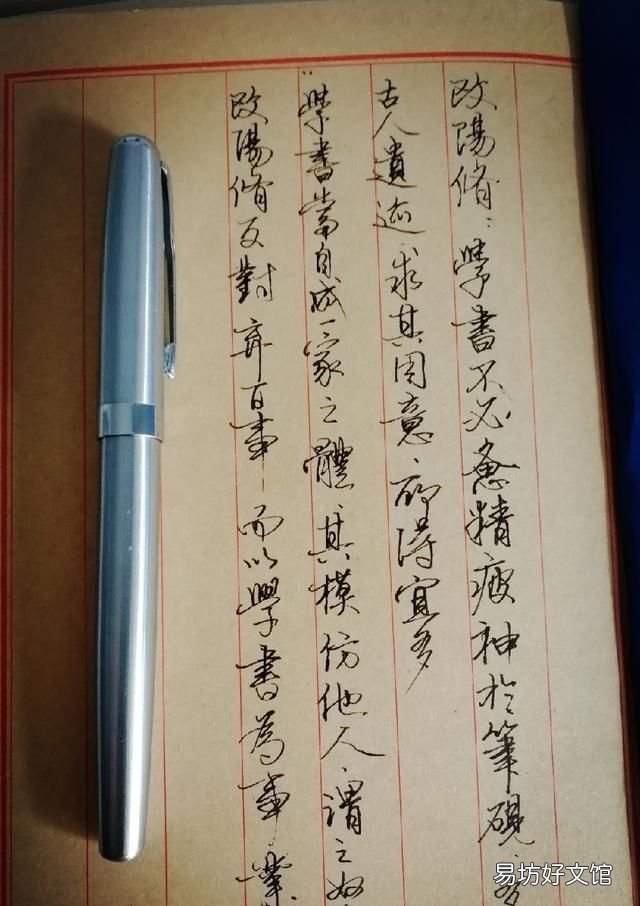 欧陽脩：學書不必憊精疲神於筆硯、多
古人遺迹、求其用意、所得宜多
"學書當自成一家之體、其模仿他人、謂之奴
歐陽脩反對弃百事而以學書為事業
易坊好文馆